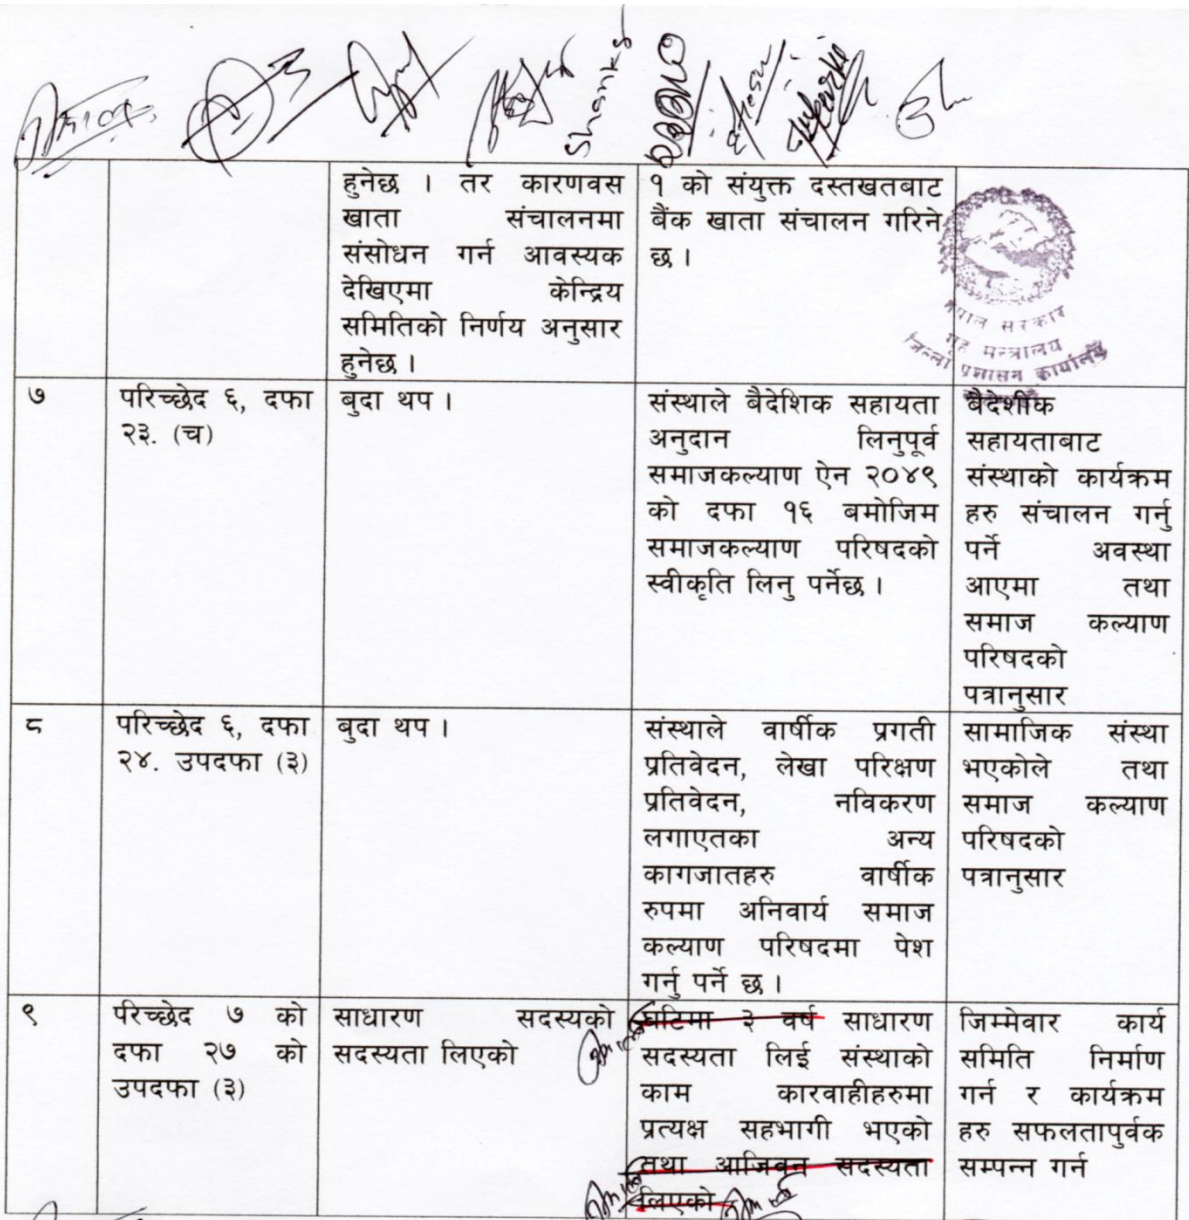 Shanks
हुनेछ । तर कारणवस
खाता संचालनमा
संसोधन गर्न आवस्यक
देखिएमा केन्द्रिय
समितिको निर्णय अनुसार
हुनेछ ।
१ को संयुक्त दस्तखतबाट
बैंक खाता संचालन गरिने
छ ।
नेपाल सरकार
गृह मन्त्रालय
जिल्ला प्रशासन कार्यालय
७
परिच्छेद ६, दफा
२३. (च)
बुदा थप ।
संस्थाले बैदेशिक सहायता
अनुदान लिनुपूर्व
समाजकल्याण ऐन २०४९
को दफा १६ बमोजिम
समाजकल्याण परिषदको
स्वीकृति लिनु पर्नेछ ।
बैदेशीक
सहायताबाट
संस्थाको कार्यक्रम
हरु संचालन गर्नु
पर्ने अवस्था
आएमा तथा
समाज कल्याण
परिषदको
पत्रानुसार
८
परिच्छेद ६, दफा
२४. उपदफा (३)
बुदा थप ।
संस्थाले वार्षीक प्रगती
प्रतिवेदन, लेखा परिक्षण
प्रतिवेदन, नविकरण
लगाएतका अन्य
कागजातहरु वार्षीक
रुपमा अनिवार्य समाज
कल्याण परिषदमा पेश
गर्नु पर्ने छ ।
सामाजिक संस्था
भएकोले तथा
समाज कल्याण
परिषदको
पत्रानुसार
९
परिच्छेद ७ को
दफा २७ को
उपदफा (३)
साधारण सदस्यको
सदस्यता लिएको
घटिमा ३ वर्ष साधारण
सदस्यता लिई संस्थाको
काम कारवाहीहरुमा
प्रत्यक्ष सहभागी भएको
तथा आजिवन सदस्यता
लिएको
जिम्मेवार कार्य
समिति निर्माण
गर्न र कार्यक्रम
हरु सफलतापुर्वक
सम्पन्न गर्न